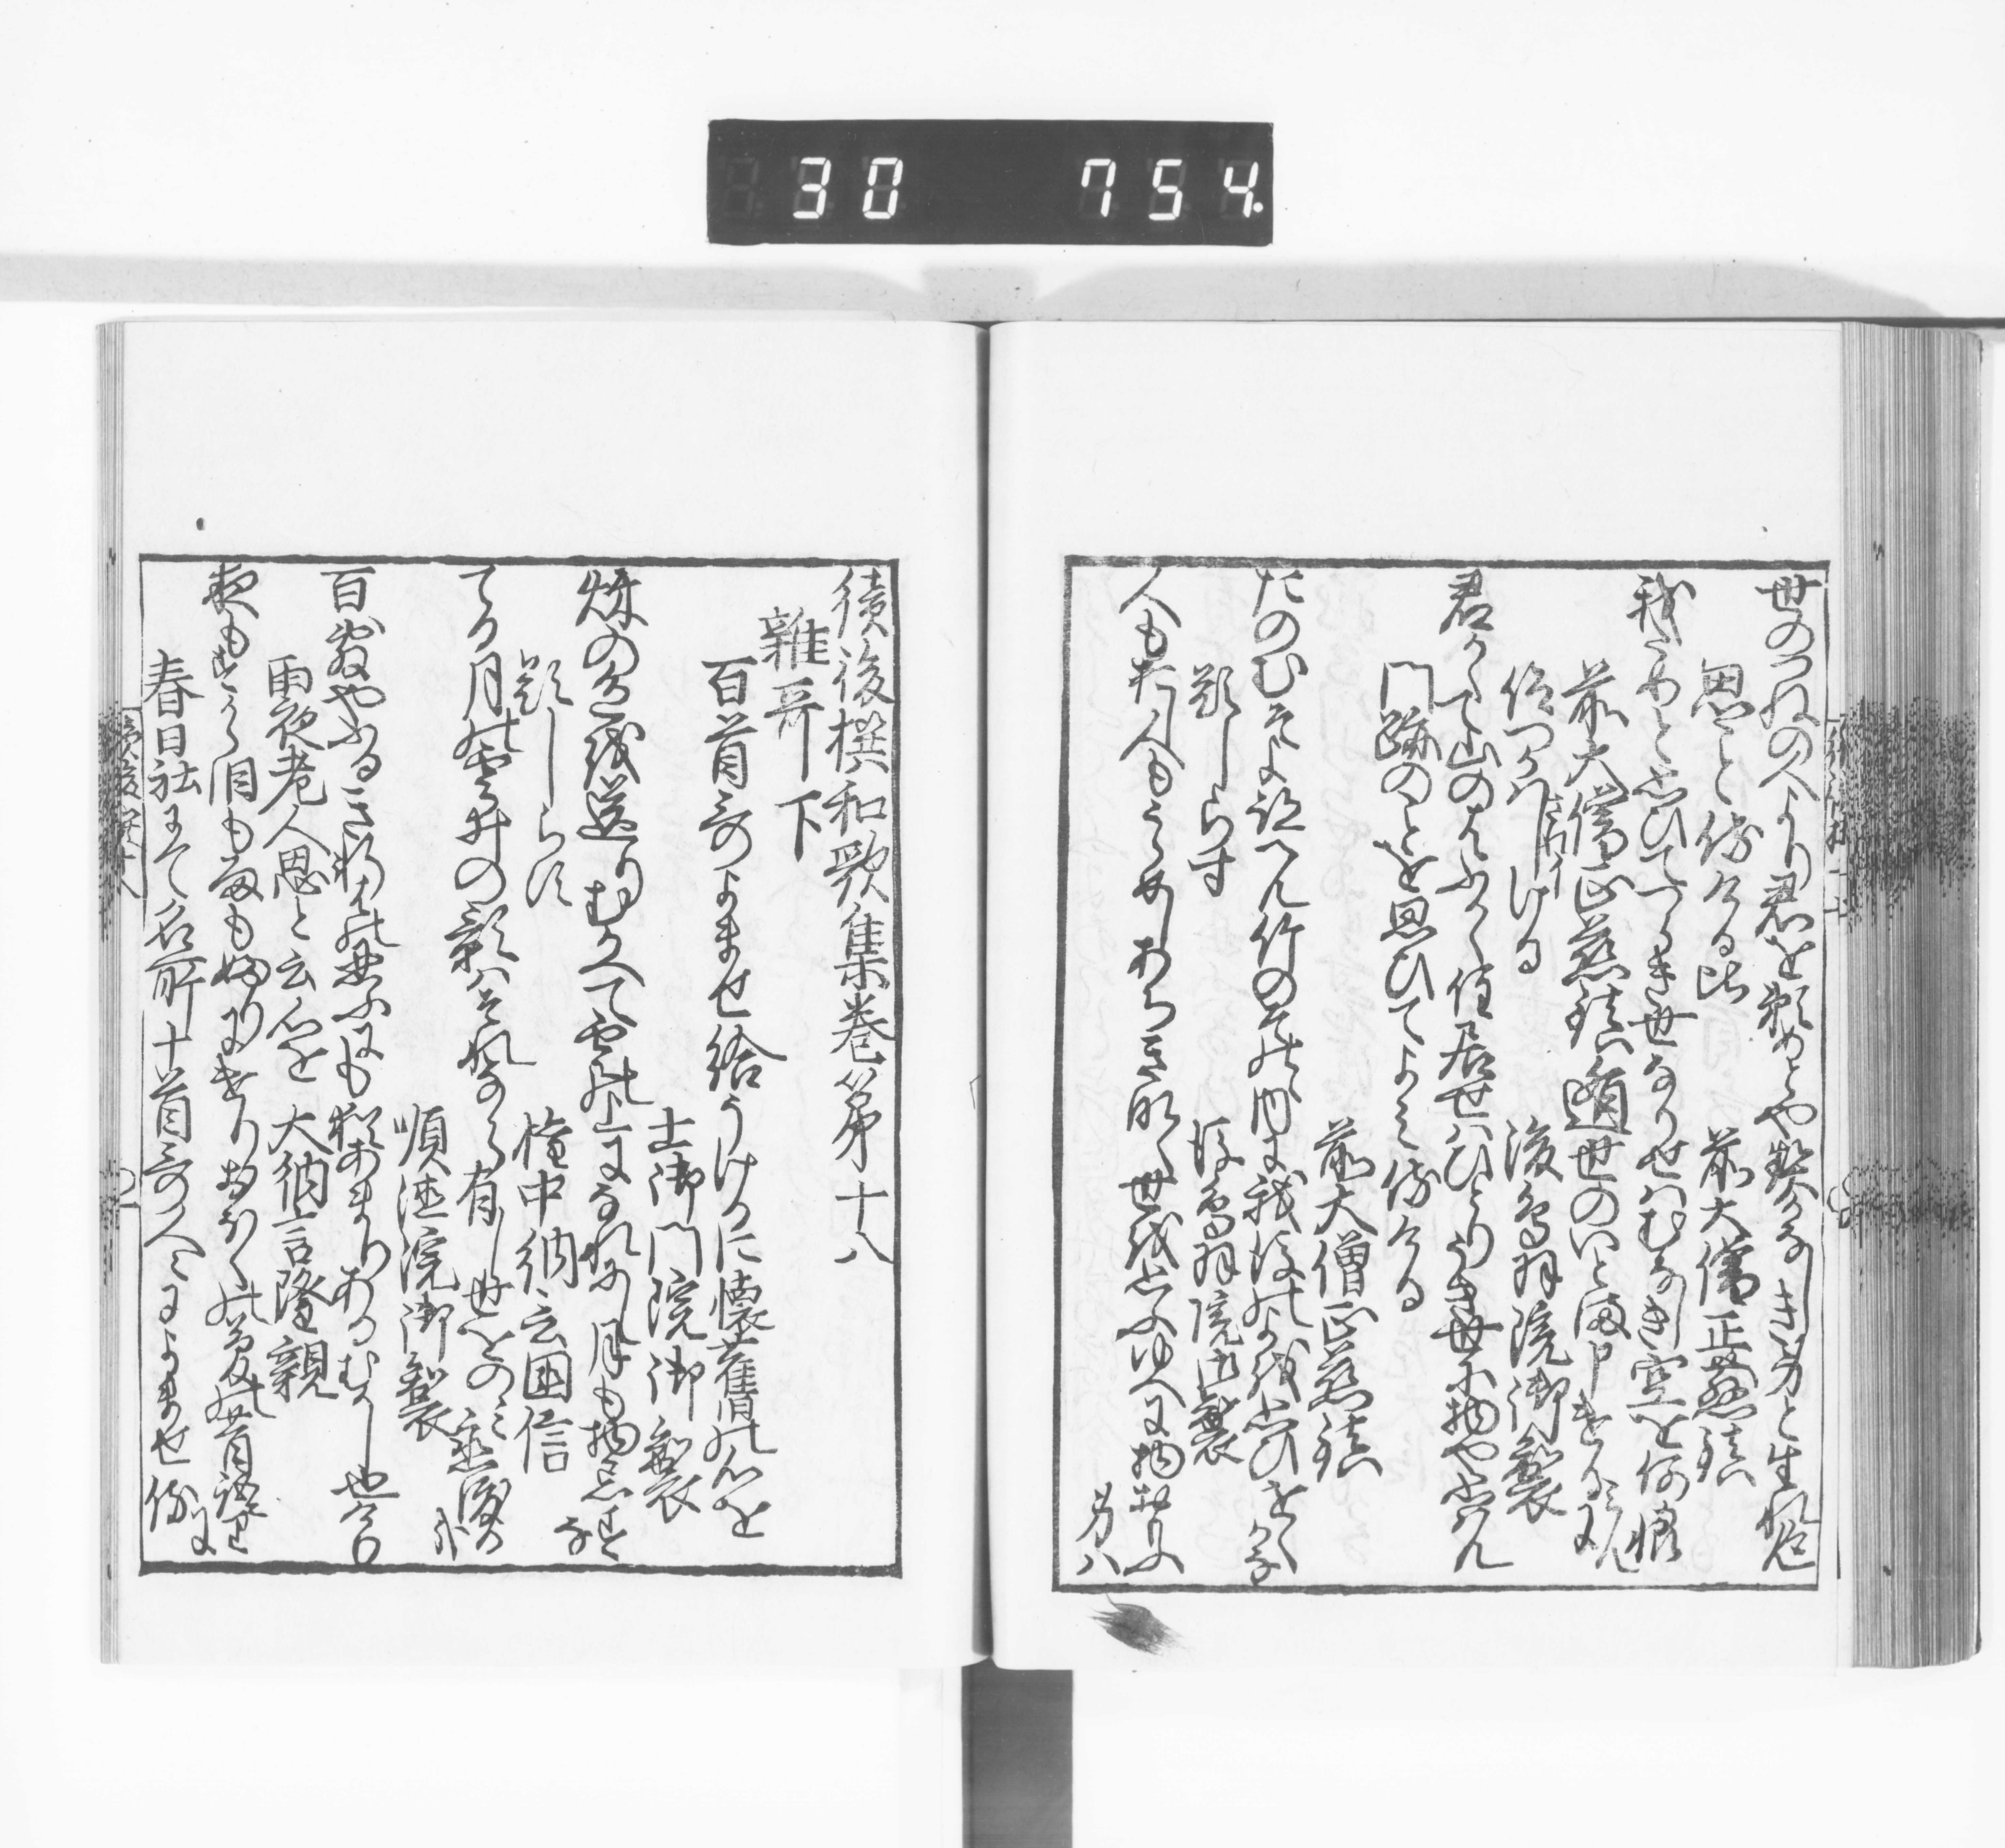 30 754.
世のつねの人より君を頼めとや契かなしき身と生釼
思こと侍ける比 前大僧正慈鎮
と思ひてつらき世なりせはむなしき空を何恨
前大僧正慈鎮遁世のいとま申けるに
つかはしける 後鳥羽院御製
君かくて山のはふかく住居せはひとりうき世に物や思はん
門跡のことを思ひてよみ侍ける
前大僧正慈鎮
たのむそよ 竹のその内に我後の
題しらす 後鳥羽院御製
人もおし人もうらめしあちきなく世を思ふゆへに物おもふ身は
続後撰和歌集巻第十八
雜哥下
百首哥よませ給うけるに懐舊の心を
土御門院御製
秋の色を送りむかへて雲の上になれにし月も物忘すな
題しらす 権中納言国信
てる月の雲井の影はそれなから有し世をのみ恋渡る哉
順徳院御製
百敷やふるき軒はの忍ふにも猶あまりあるむかし也けり
雨夜老人思と云心を 大納言隆親
夜もすから泪も雨もふりにけりおほくの夢の昔語に
春日社にて名所十首哥人々によませ侍